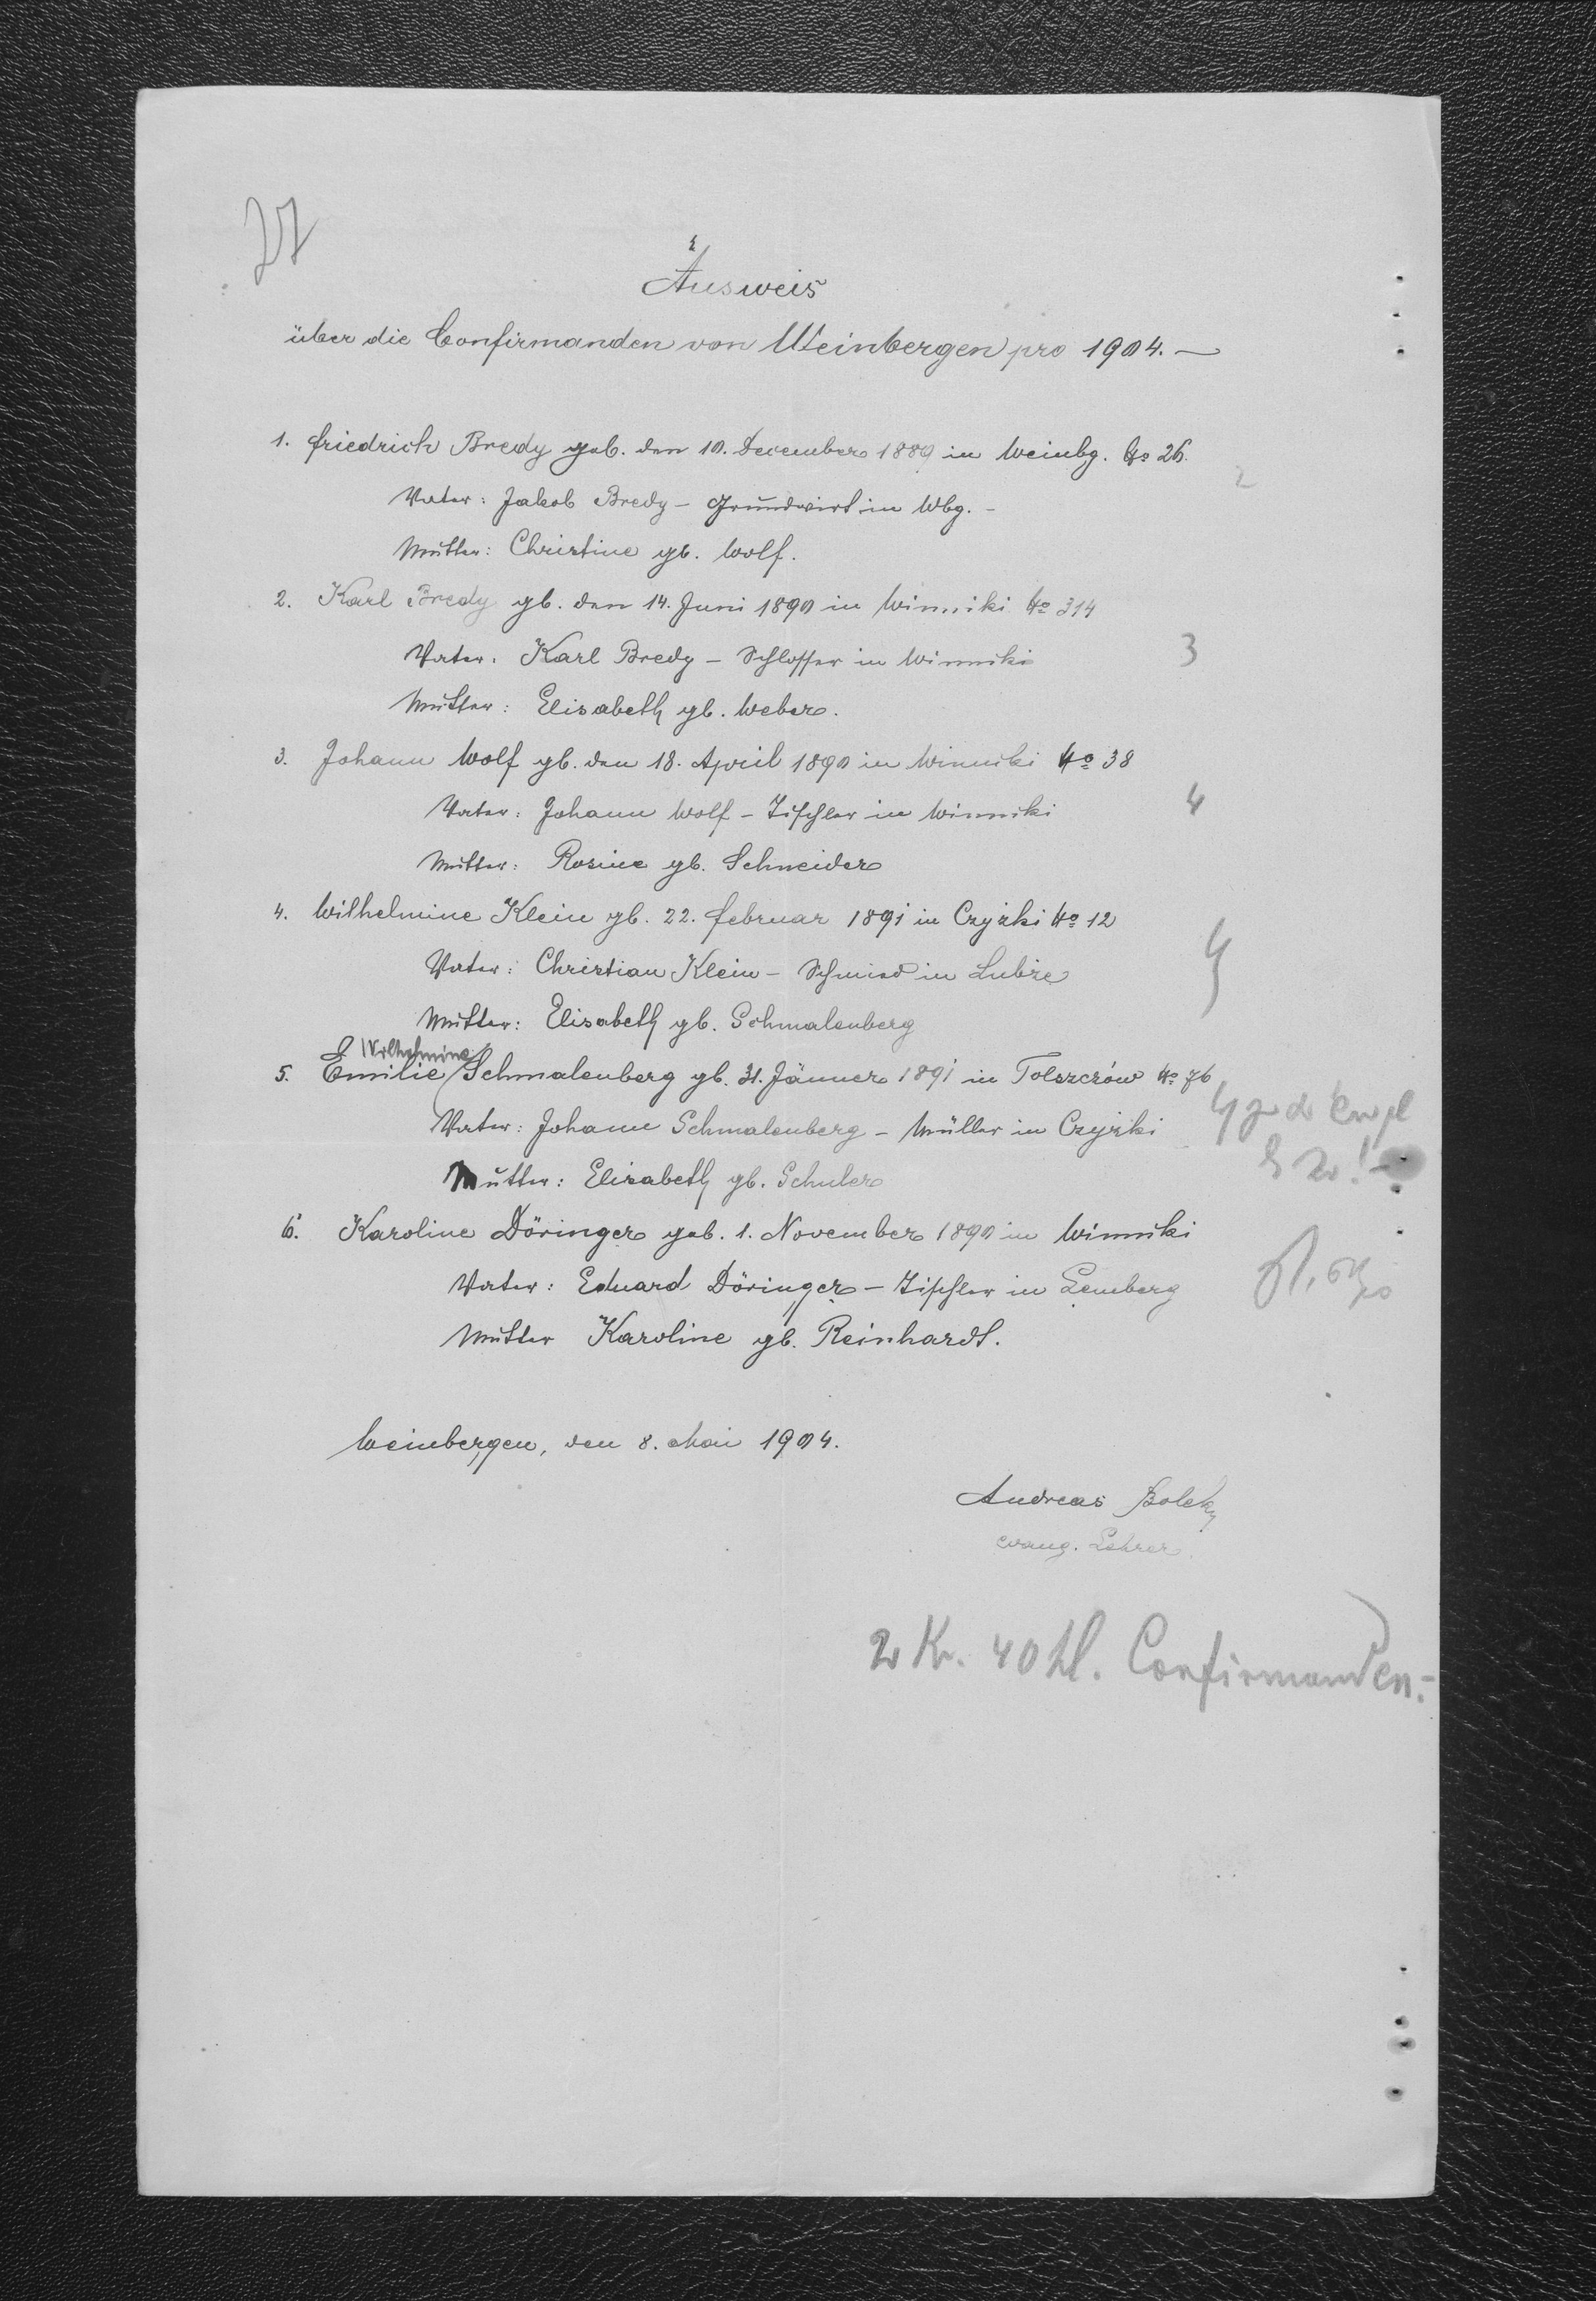 Ausweis
über die Confirmanden von Weinbergen pro 1904. —
1. Friedrich Bredy geb. den 10. December 1889 in Weinbg. No 26.
2
Vater: Jakob Bredy – Grundwirt in Wbg. –
Mutter: Christine gb. Wolf.
2. Karl Bredy gb. den 14. Juni 1890 in Winniki No 314
Vater: Karl Bredy – Schlosser in Winniki
3
Mutter: Elisabeth gb. Weber.
3. Johann Wolf gb. den 18. April 1890 in Winniki No 38
Vater: Johann Wolf – Tischler in Winniki
4
Mutter: Rosine gb. Schneider
4. Wilhelmine Klein gb. 22. Februar 1891 in Czyżki No 12
Vater: Christian Klein – Schmied in Lubże
Mutter: Elisabeth gb. Schmalenberg
Wilhelmine
5. Emilie Schmalenberg gb. 31. Jänner 1891 in Tolszczów No 76
Vater: Johann Schmalenberg – Müller in Czyżki
Mutter: Elisabeth gb. Schuler
6. Karoline Döringer geb. 1. November 1890 in Winniki
Vater: Eduard Döringer – Tischler in Lemberg
Mutter Karoline gb. Reinhardt.
Weinbergen, den 8. Mai 1904.
Andreas Bolek
evang. Lehrer.
2 Kr. 40 hl. Confirmanden.–